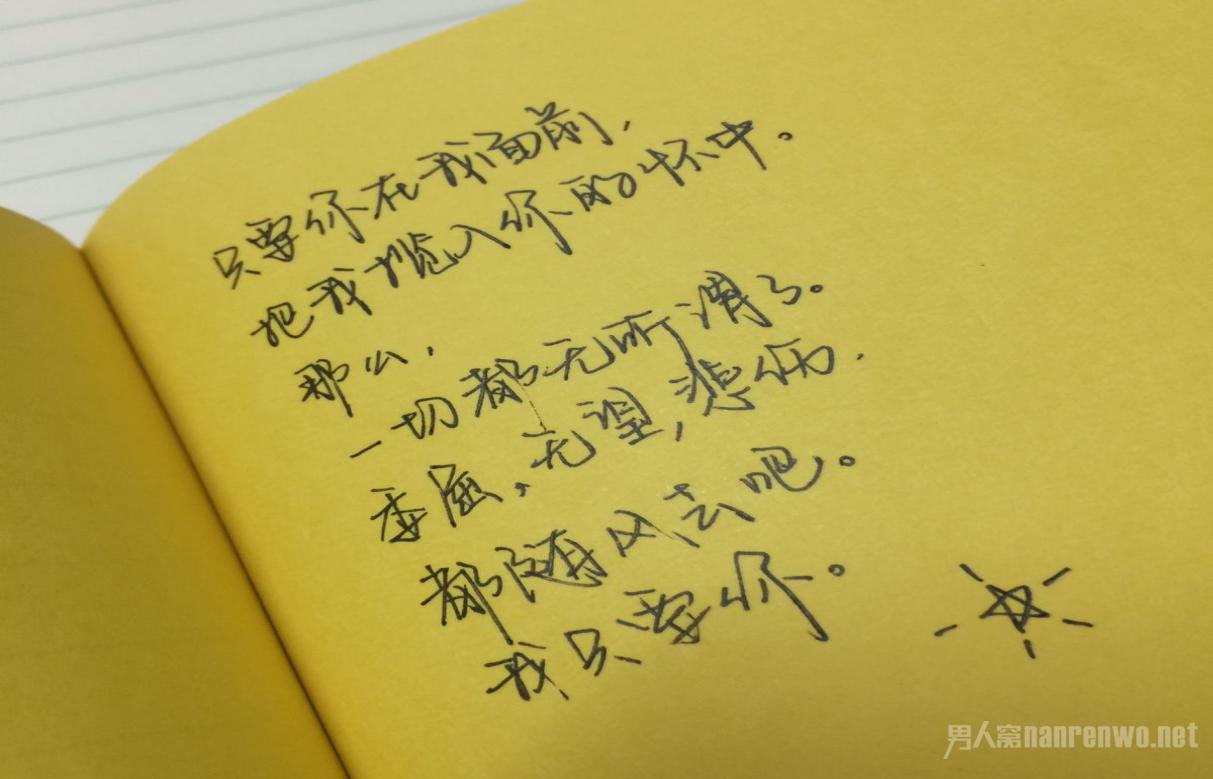 只要你在我面前，
把我揽入你的怀中。
那么，
一切都无所谓了。
委屈，无望，悲伤.
都随风去吧。
我只要你。
男人窝nanrenwo.net